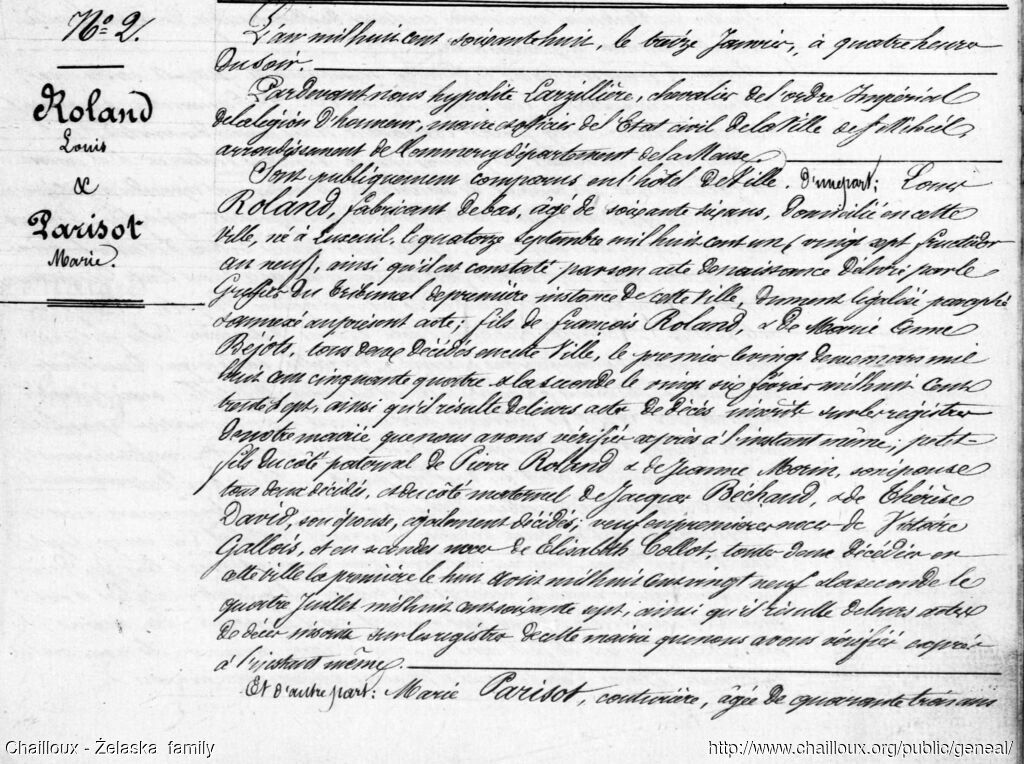 N° 2.
Roland
Louis
&
Parisot
Marie.
L'an mil huit cent soixante huit, le treize Janvier, à quatre heures
du soir.
Pardevant nous hypolite Larzillière, chevalier de l'ordre Impérial
de la légion d'honneur, maire & officier de l'Etat civil de la Ville de St Mihiel
arrondissement de Commercy département de la Meuse.
Sont publiquement comparus en l'hôtel de Ville, d'une part; Louis
Roland, fabricant de bas, âgé de soixante six ans, domicilié en cette
ville, né à Luxeuil, le quatorze septembre mil huit cent un (vingt sept fructidor
an neuf), ainsi qu'il est constaté par son acte de naissance délivré par le
Greffier du tribunal de première instance de cette Ville, dument légalisé paraphé
& annexé au présent acte; fils de françois Roland, & de Marie Anne
Béjots, tous deux décédés en cette Ville, le premier le vingt deux mars mil
huit cent cinquante quatre & la seconde le vingt six février mil huit cent
trente sept, ainsi qu'il résulte de leurs actes de décès inscrits sur les registres
de notre mairie que nous avons vérifiés exprès à l'instant même; petit-
fils du côté paternel de Pierre Roland & de Jeanne Morin, son épouse
tous deux décédés, et du côté maternel de Jacques Bechaud, & de Thérèse
David, son épouse, également décédés; veuf en premières noces de Victoire
Gallois, et en secondes noces de Elisabeth Collot, toutes deux décédées en
cette ville la première le huit août mil huit cent vingt neuf & la seconde le
quatre Juillet mil huit cent soixante sept, ainsi qu'il résulte de leurs actes
de décès inscrits sur les registres de cette mairie que nous avons vérifiés exprès
à l'instant même.
Et d'autre part: Marie Parisot, couturière, âgée de quarante trois ans
Chailloux - Żelaska family
http://www.chailloux.org/public/geneal/